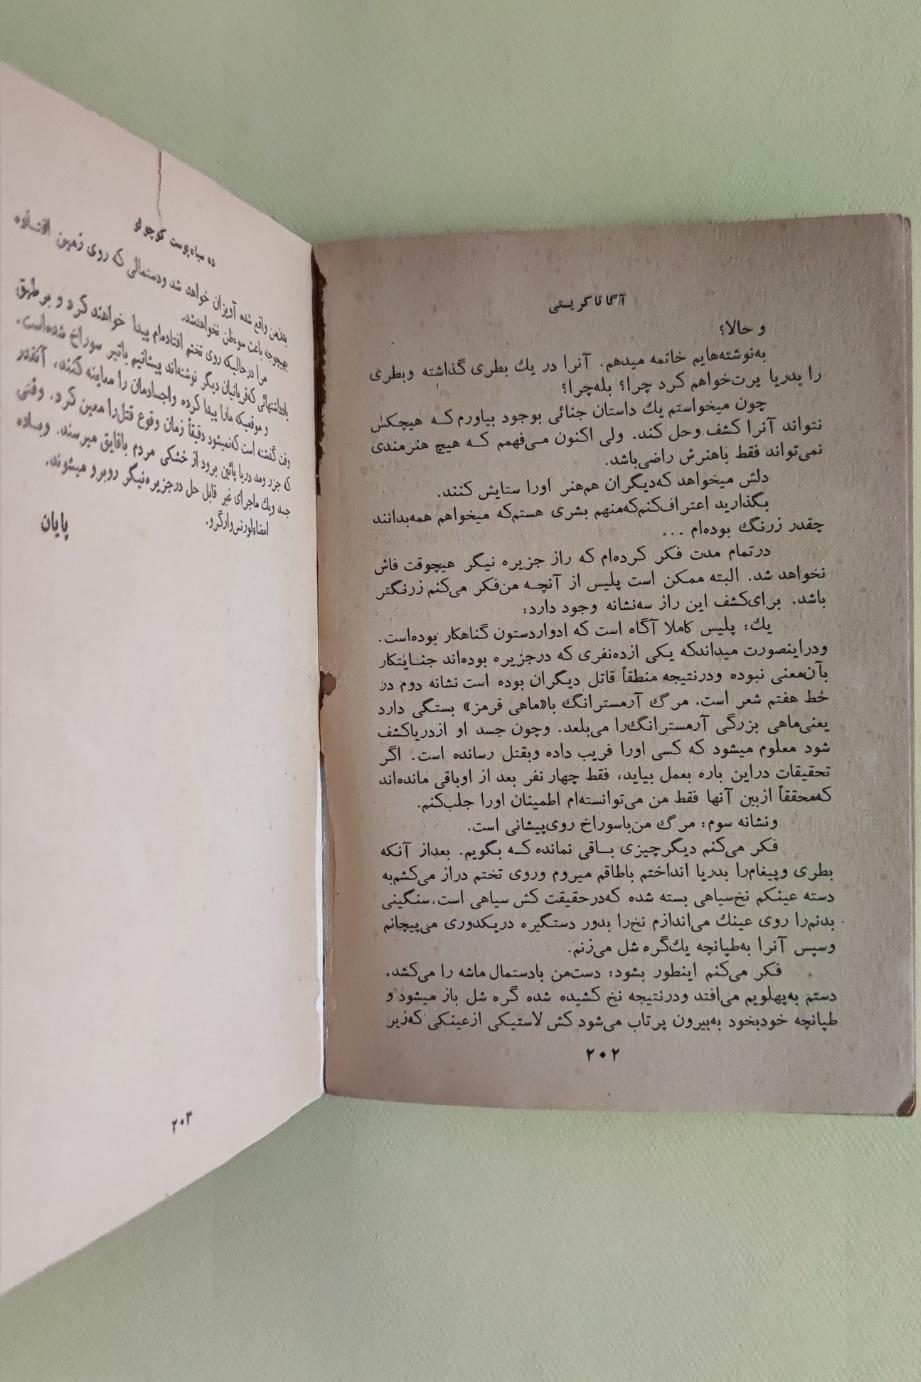 آگاتا کریستی
و حالا؟
به‌نوشته‌هایم خاتمه میدهم. آنرا در یك بطری گذاشته وبطری
را بدریا پرت‌خواهم کرد چرا؟ بله‌چرا؟
چون میخواستم یك داستان جنائی بوجود بیاورم‌که هیچکس
نتواند آنرا کشف وحل کند. ولی اکنون می‌فهمم که هیچ هنرمندی
نمی‌تواند فقط باهنرش راضی‌باشد.
دلش میخواهد که‌دیگران هم‌هنر اورا ستایش کنند.
بگذارید اعتراف‌کنم‌که‌منهم بشری هستم‌که میخواهم همه‌بدانند
چقدر زرنگ بوده‌ام ...
درتمام مدت فکر کرده‌ام که راز جزیره نیگر هیچوقت فاش
نخواهد شد. البته ممکن است پلیس از آنچه من‌فکر می‌کنم زرنگتر
باشد. برای‌کشف این راز سه‌نشانه وجود دارد:
یك: پلیس کاملا آگاه است که ادواردستون گناهکار بوده‌است.
ودراینصورت میداندکه یکی ازده‌نفری که درجزیره بوده‌اند جنایتکار
بآن‌معنی نبوده ودرنتیجه منطقاً قاتل دیگران بوده است نشانه دوم در
خط هفتم شعر است. مرگ آرمسترانگ با«ماهی قرمز» بستگی دارد
یعنی‌ماهی بزرگی آرمسترانگ‌را می‌بلعد. وچون جسد او ازدریاکشف
شود معلوم میشود که کسی اورا فریب داده وبقتل رسانده است. اگر
تحقیقات دراین باره بعمل بیاید، فقط چهار نفر بعد از اوباقی مانده‌اند
که‌محققاً ازبین آنها فقط من می‌توانسته‌ام اطمینان اورا جلب‌کنم.
ونشانه سوم: مرگ من‌باسوراخ روی‌پیشانی است.
فکر می‌کنم دیگرچیزی باقی نمانده که بگویم. بعداز آنکه
بطری وپیغام‌را بدریا انداختم باطاقم میروم وروی تختم دراز می‌کشم‌به
دسته عینکم نخ‌سیاهی بسته شده که‌درحقیقت کش سیاهی است.سنگینی
بدنم‌را روی عینك می‌اندازم نخ‌را بدور دستگیره دریکدوری می‌پیچانم
وسپس آنرا به‌طپانچه یك‌گره شل می‌زنم.
فکر می‌کنم اینطور بشود: دست‌من بادستمال ماشه را می‌کشد.
دستم به‌پهلویم می‌افتد ودرنتیجه نخ کشیده شده گره شل باز میشود و
طپانچه خودبخود به‌بیرون پرتاب می‌شود کش لاستیکی ازعینکی که‌زیر
۲۰۲
ده سیاه‌پوست کوچولو
بدن‌من واقع شده آویزان خواهد شد ودستمالی که روی زمین افتاده
بهیچوجه باعث سوءظن نخواهدشد.
مرا درحالیکه روی تختم افتاده‌ام پیدا خواهند کرد و برطبق
یادداشتهائی که‌قربانیان دیگر نوشته‌اند پیشانیم باتیر سوراخ شده‌است.
و موقعیکه مارا پیدا کرده واجسادمان را معاینه کنند، آنقدر
وقت گذشته است که‌نمیشود دقیقاً زمان وقوع قتل‌را معین کرد. وقتی
که جزر ومد دریا پائین برود از خشکی مردم باقایق میرسند. وباده
جسد ویك ماجرای غیر قابل حل درجزیره‌نیگر روبرو میشوند.
امضاءلورنس‌وارگرو.
پایان
۲۰۳